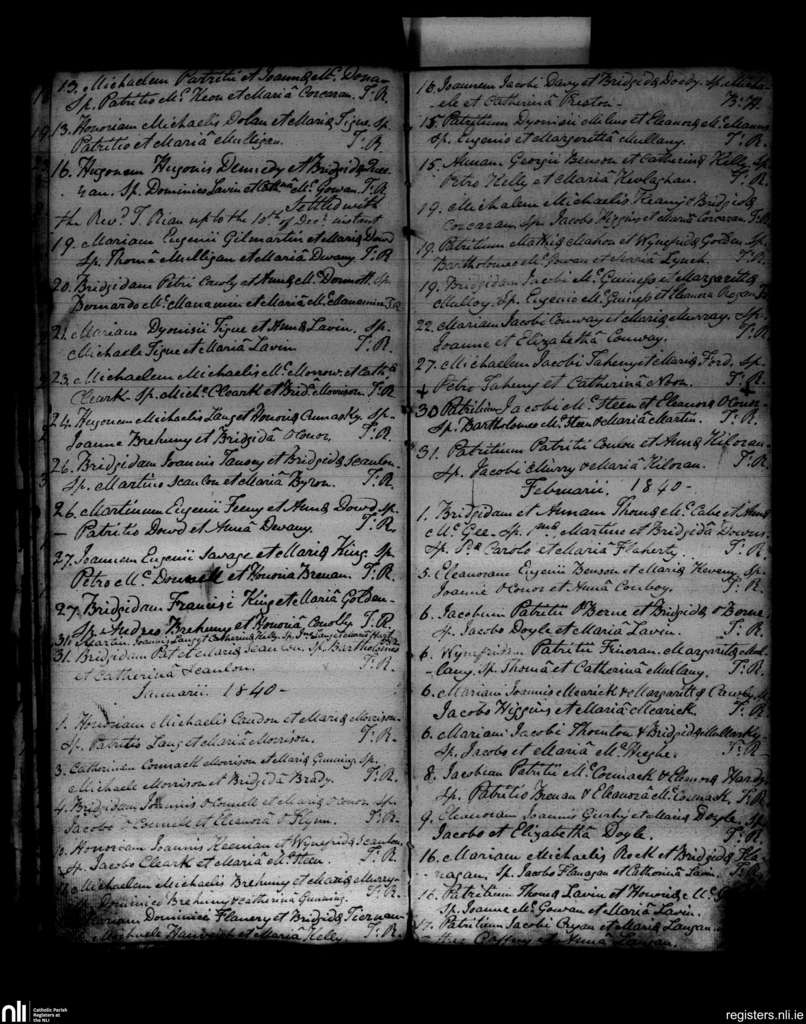 13. Michaelem Patritii et Joannæ Mc Dona-
Sp. Patritio Mc Keon et Mariâ Corcoran. T:R.
13. Honoriam Michaelis Dolan et Mariæ Tigue. Sp.
Patritio et Mariâ Mulligan. T:R
16. Hugonem Hugonis Dennedy et Bridgidæ
Sp. Dominico Lavin et Mc Gowan. T:R
Settled with
the Revd. T. Rian up to the 10th of Decr. instant
19. Mariam Eugenii Gilmartin et Mariæ Dowd
Sp. Thomâ Mulligan et Mariâ Devany. T:R
20. Bridgidam Petri Cowly et Annæ Mc Dermott. Sp
Bernardo Mc Manamin et Mariâ Mc Manamin T.R
21. Mariam Dyonisii Tigue et Annæ Lavin. Sp.
Michaele Tigue et Mariâ Lavin T:R.
23. Michaelem Michaelis Mc Morrow et Cathæ
Cleark Sp. Michl. Cleark et Bridâ Morrison. T:R.
24. Hugonem Michaelis Lang et Honoriæ Cumasky. Sp.
Joanne Brehuny et Bridgidâ O'Conor. T:R.
26. Bridgidam Joannis Tansey et Bridgidæ Scanlon.
Sp. Martino Scanlon et Mariâ Byron. T.R.
26. Martinum Eugenii Feeny et Annæ Dowd Sp.
Patritio Dowd et Annâ Devany. T:R
27. Joannem Eugenii Savage et Mariæ King. Sp
Petro Mc Donnell et Honoriâ Brenan. T:R.
27. Bridgidam Francisi King et Mariâ Golden-
Sp. Andreo Brehuny et Honoriâ Conolly. T.R
31. Martin Joannis Lang & Catherinæ Kelly. Sp.
31. Bridgidam Pat et Mariæ Scanlon. Sp. Bartholomeo
et Catherinâ Scanlon. T.R.
Januarii. 1840-
1. Honoriam Michaelis Condon et Mariæ Morrison-
Sp. Patritio Lang et Mariâ Morrison. T:R.
3. Catherinam Cormack Morrison et Mariæ Gunning. Sp.
Michaele Morrison et Bridgidâ Brady. T:R.
4. Bridgidam Joannis O'Connell et Mariæ O'Conor. Sp.
Jacobo O'Connell et Eleanorâ O'Flynn. T:R.
Honoriam Joannis Keenan et Wynefridæ Scanlon.
Sp. Jacobo Cleark et Mariâ Mc Steen. T:R.
Michaelem Michaelis Brehuny et Mariæ Murry-
Dominico Brehuny & Catherinâ Gunning. T:R.
Mariam Dominici Flanery et Bridgidæ Tiernan-
Michaele et Mariâ Heley. T:R.
16. Joannem Jacobi Davy et Bridgidæ Doody. Sp. Micha-
-ele et Catherinâ Preston- B:H.
15. Patritium Dyonisii Milmo et Eleanoræ Mc Manus
Sp. Eugenio et Margarettâ Mullany. T:R.
15. Annam Georgii Benson et Catherinæ Kelly. Sp
Petro Kelly et Mariâ Kevlaghan. T:R.
19. Michalem Michaelis Keany & Bridgidæ
Corcoran. Sp. Jacobo Higgins et Mariâ Corcoran. T:R
19. Patritium Mathiæ Mahon et Wynefridæ Golden. Sp.
Bartholomeo Mc Gowan et Mariâ Lynch. T:R.
19. Bridgidam Jacobi Mc Guiness et Margaritæ
Mulloy. Sp. Eugenio Mc Guiness et Eleanora Regan T.R
22. Mariam Jacobi Conway et Mariæ Murray. Sp.
Joanne et Elizabethâ Conway. T:R.
27. Michaelem Jacobi Taheny et Mariæ Ford. Sp.
+ Petro Taheny et Catherinâ Noon. T:R.
30. Patritium Jacobi Mc Steen et Eleanoræ O'Conor-
Sp. Bartholomeo Mc Steen & Mariâ Martin. T:R.
31. Patritium Patritii Conlon et Annæ Kiloran.
Sp. Jacobi Murry & Mariâ Kiloran. T.R.
Februarii. 1840-
1. Bridgidam et Annam Thomæ Mc Cabe et Annæ
Mc Gee. Sp. Martino et Bridgidâ Downs.
Sp. Carolo et Mariâ Flaherty. T:R.
5. Eleanoram Eugenii Benson et Mariæ Keveny. Sp.
Joanne O'Conor et Annâ Conboy. T:R.
6. Jacobum Patritii O'Berne et Bridgidæ O'Berne
Sp. Jacobo Doyle et Mariâ Lavin. T:R.
6. Wynefridam Patritii Fineran. Margaritæ Mul-
lany. Sp. Thomâ et Catherinâ Mullany. T:R.
6. Mariam Joannis Mearick & Margaritæ
Jacobo Higgins et Mariâ Mearick. T:R
6. Mariam Jacobi Thornton & Bridgidæ
Sp. Jacobo et Mariâ Mc Hughe. T:R
8. Jacobum Patritii Mc Cormack & Eleanoræ Hardy
Sp. Patritio Brenan & Eleanorâ Mc Cormack. T:R
9. Eleanoram Joannis et Mariæ Doyle. Sp
Jacobo et Elizabethâ Doyle. T:R
16. Mariam Michaelis Rock et Bridgidæ Fla-
nagan. Sp. Jacobo Flanagan et Catherinâ Lavin. T:R
16. Patritium Thomæ Lavin et Honoriæ
Sp. Joanne Mc Gowan et Mariâ Lavin.
17. Patritium Jacobi Cryan et Mariæ Langan.
et Annâ Langan.
nli
Catholic Parish
Registers at
the NLI
registers.nli.ie